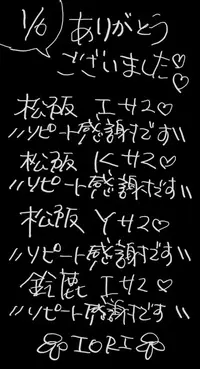 1/6 ありがとう
ございました♡♡
松阪 Iサマ♡
〃リピート感謝です〃
松阪 Kサマ♡
〃リピート感謝です〃
松阪 Yサマ♡
〃リピート感謝です〃
鈴鹿 Iサマ♡
〃リピート感謝です〃
♧IORI♧